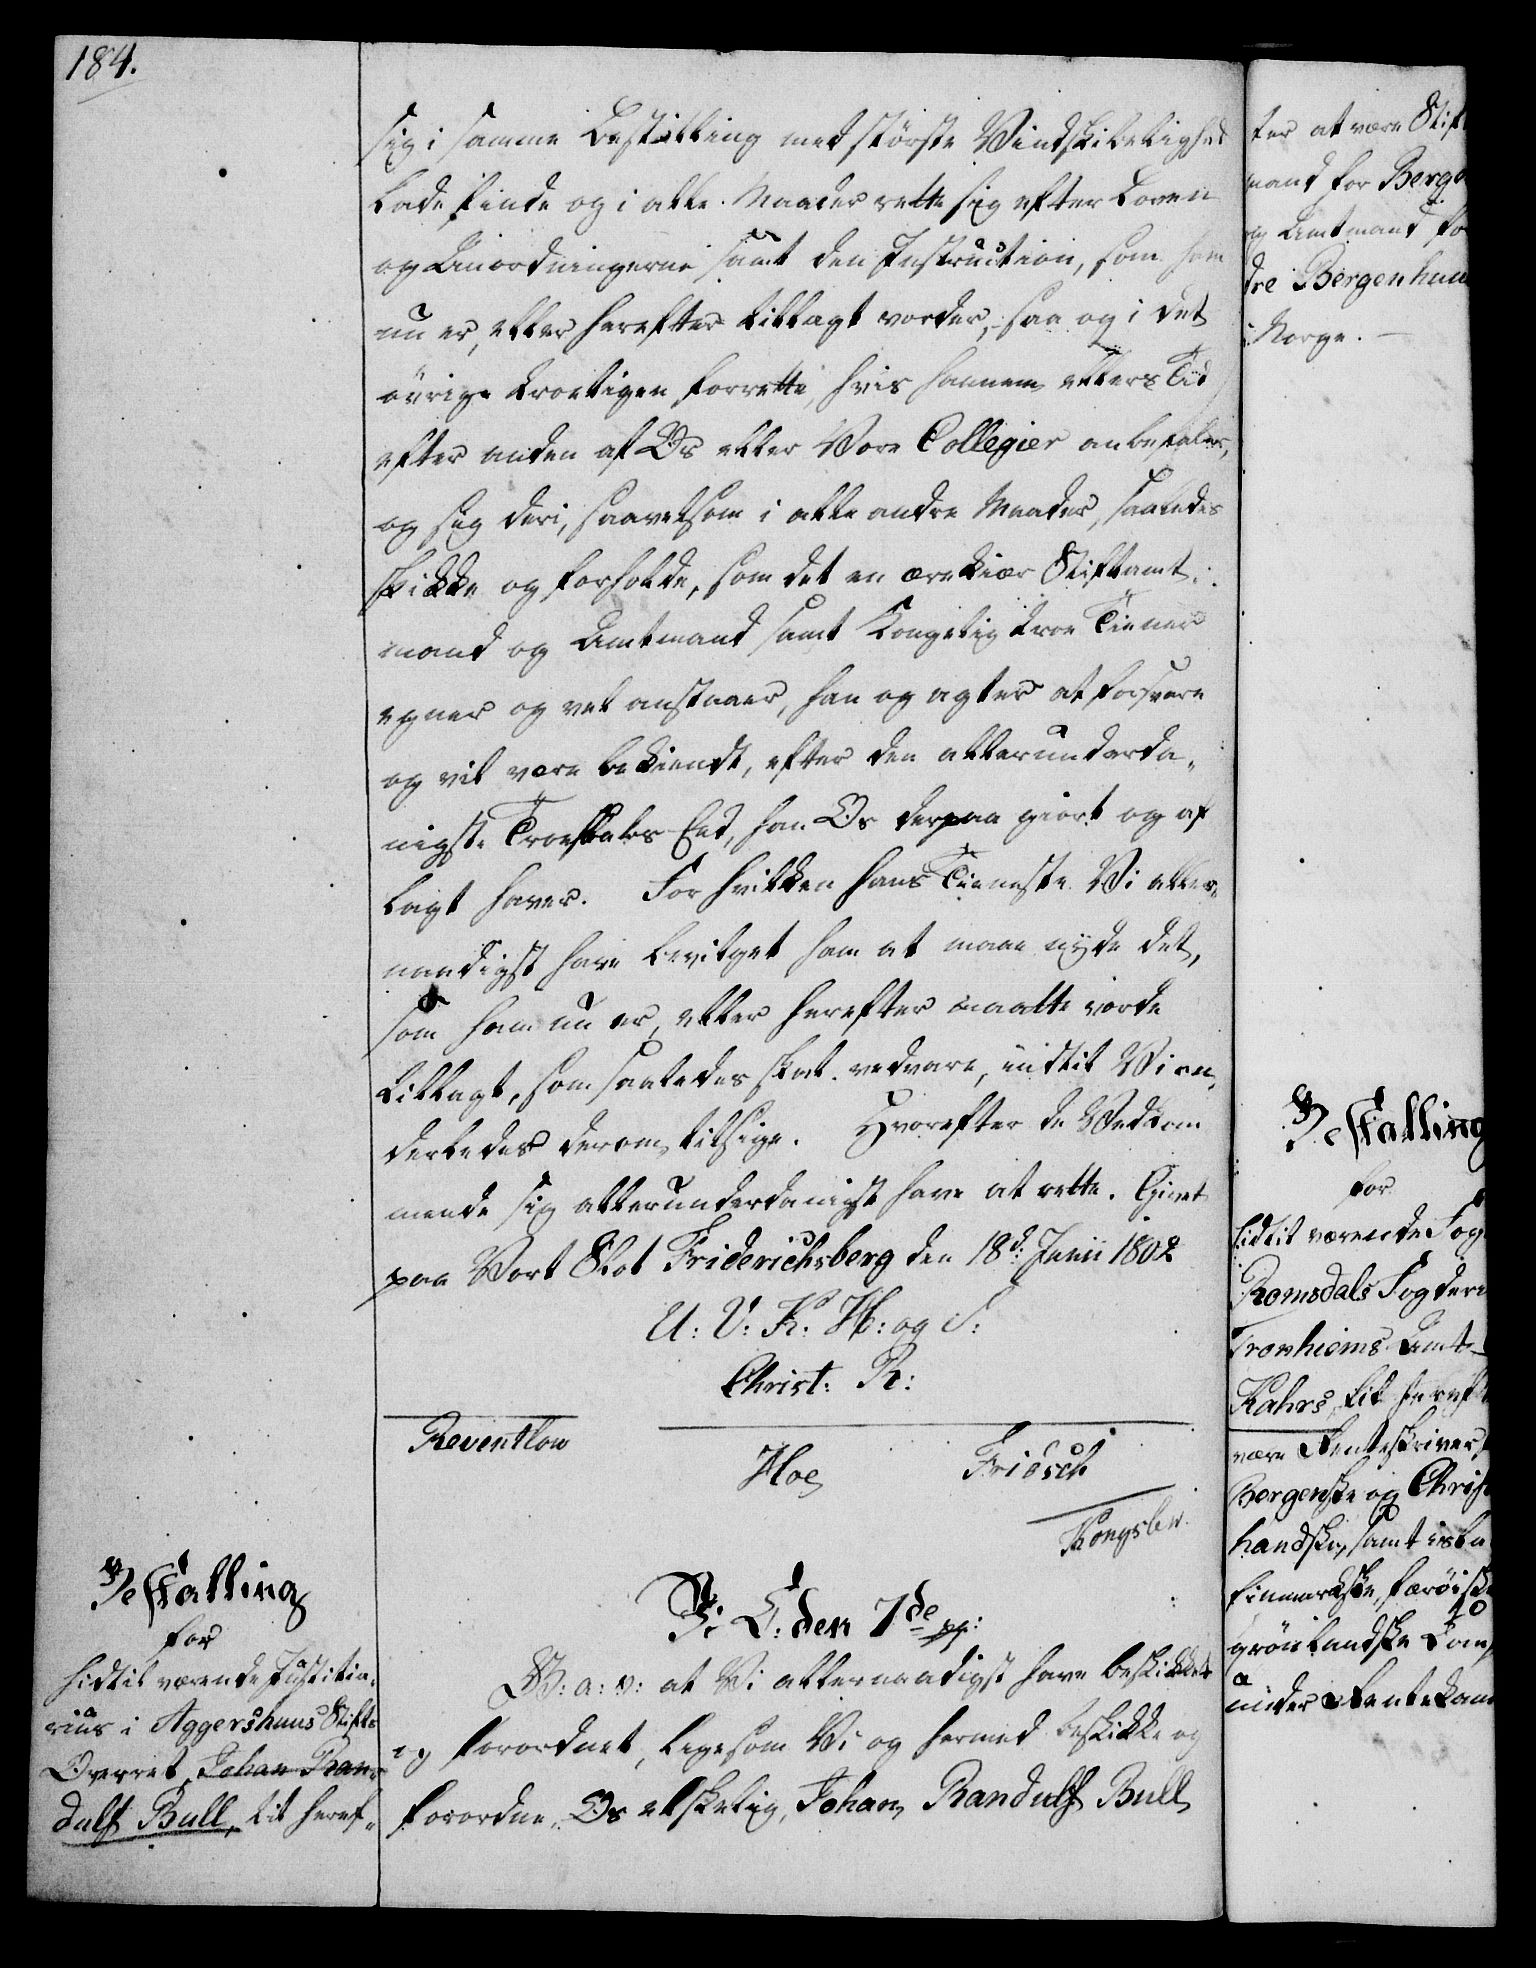 184.
sig i samme Bestilling med störste Vindskibelighed
lade finde og i alle Maader rette sig efter Loven
og Anordningerne samt den Instruction, som ham
nu er, eller herefter tillagt vorder, saa og i det
övrige troeligen forrette, hvis hannem ellers Tiid
efter anden af Os eller Vore Collegier anbefales,
og sig deri, saavelsom i alle andre Maader, saaledes
skikke og forholde, som det en ærekiær Stiftamt:
mand og Amtmand samt Kongelig troe Tiener
egner og vel anstaaer, han og agter at forsvare
og vil være bekiendt, efter den allerunderda„
nigste Troeskabs Eed, han Os derpaa giort og af
lagt haver. For hvilken hans Tieneste Vi aller„
naadigst have bevilget ham at maae nyde det,
som ham nu er, eller herefter maatte vorde
tillagt, som saaledes skal vedvare, indtil Vi an„
derledes derom tilsige. Hvorefter de Vedkom
mende sig allerunderdanigst have at rette. Givet
paa Vort Slot Friderichsberg den 18d: Junii 1802
U: V: K: H: og S:
Christ: R:
Reventlow
Hoe Friisch
Kongslew.
Bestalling
for
hidtil værende Justitia„
rius i Aggershuus Stifts
Overret, Johan Ran„
dulf Bull, til heref„
Vi C: den 7de pp:
G: a: v: at Vi allernaadigst have beskikket
og forordnet, ligesom Vi og hermed beskikke og
forordne, Os elskelig, Johan Randulf Bull
ter at være Stift
mand for Berge
og Amtmand fo
dre Bergenhuu
i Norge.
Bestalling
for
hidtil værende Fog
Romsdals Fogderi
Tronhiems Amt
Kahrs, til heref
være Renteskriver
Bergenske og Chris
handske, samt isla
finmarkske, færöiske
grönlandske Con
under Rentekam